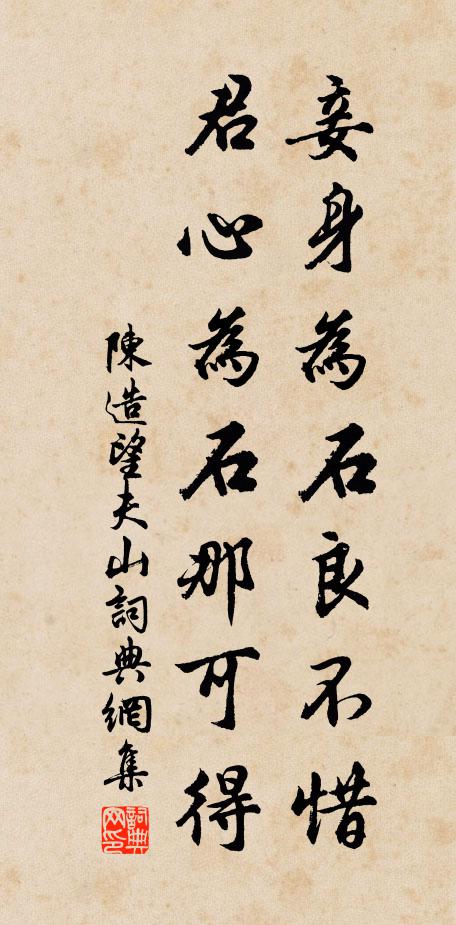 妾身為石良不惜
君心為石那可得
陳造望夫山詞典網集
詞典
网印